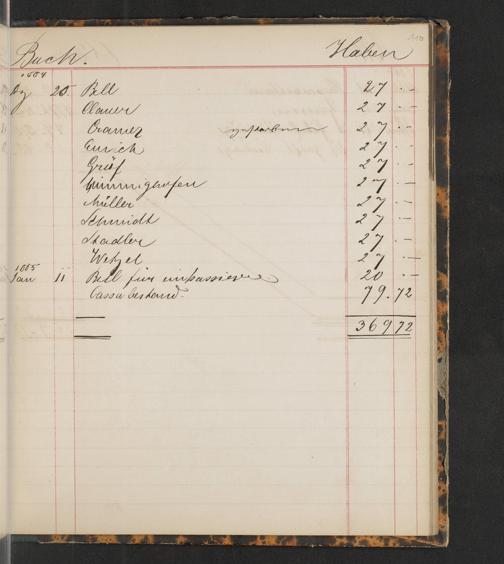 110
Buch. Haben
1884
Dz 20 Bell 27 . —
Clauer 27 . —
Cramer 27 . —
Emrich 27 . —
Gräf 27 . —
Himmighofen 27 . —
Müller 27 . —
Schmidt 27 . —
Stadler 27 . —
Wetzel 27 . —
1885
Jan 11 Bell für 20 —
Cassa bestand. 79.72
369 72